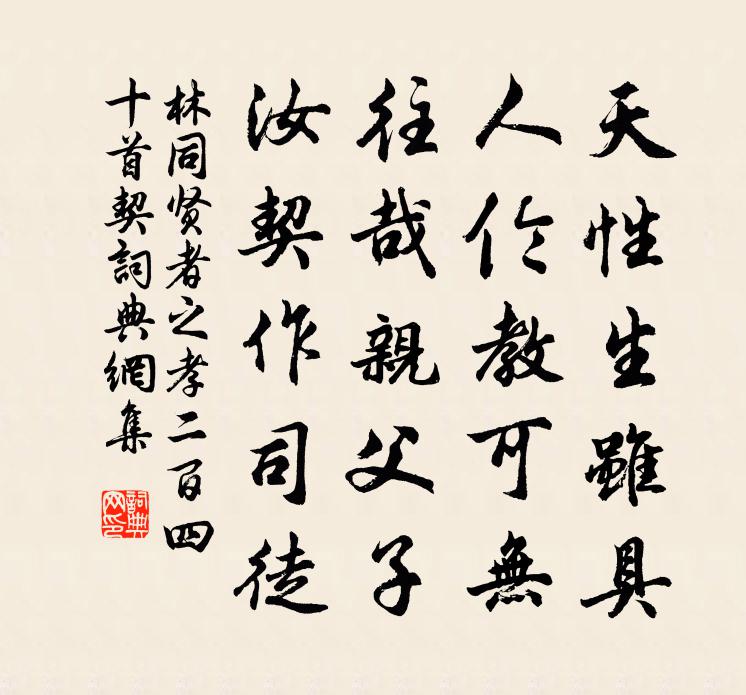 天性生雖具
人伦教可無
往哉親父子
汝契作司徒
林同贤者之孝二百四
十首契詞典網集
詞典网印